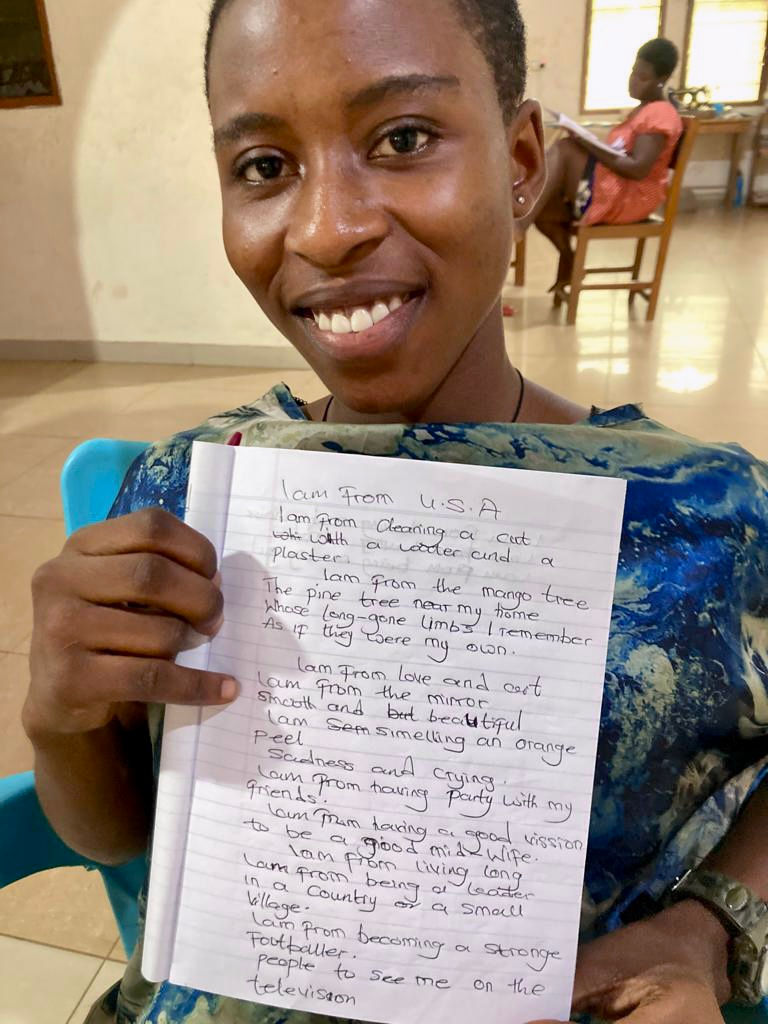 I am From U.S.A
I am from cleaning a cut
with a water and a
plaster.
I am from the mango tree
The pine tree near my home
Whose long-gone limbs I remember
As if they were my own.
I am from love and cut
I am from the mirror
smooth and but beautiful
I am sem simelling an orange
Peel
Sadness and crying.
I am from having Party with my
friends.
I am from having a good vission
to be a good mid-wife.
I am from living long
I am from being a leader
in a country or a small
village.
I am from becoming a stronge
Footballer.
people to see me on the
television